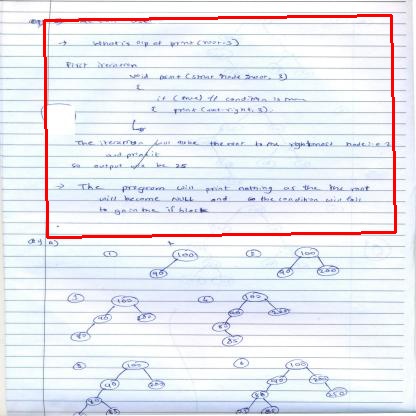 → What is o/p of print (root, 3)
First iteration
void print (struct node *root, 3)
{
if (true) // condition is true
{ print (root→right, 3).
The iteration will take the root to the rightmost node i.e 2
and print it
so output will be 25
→ The program will print nothing as the root
will become NULL and so the condition will fail
to go in the if block
Q4 a)
① 100
90
② 100
90 200
3 100
90 200
80
4 100
90 200
80
85
5 100
90 200
80 85
6 100
90 200
80 250
85